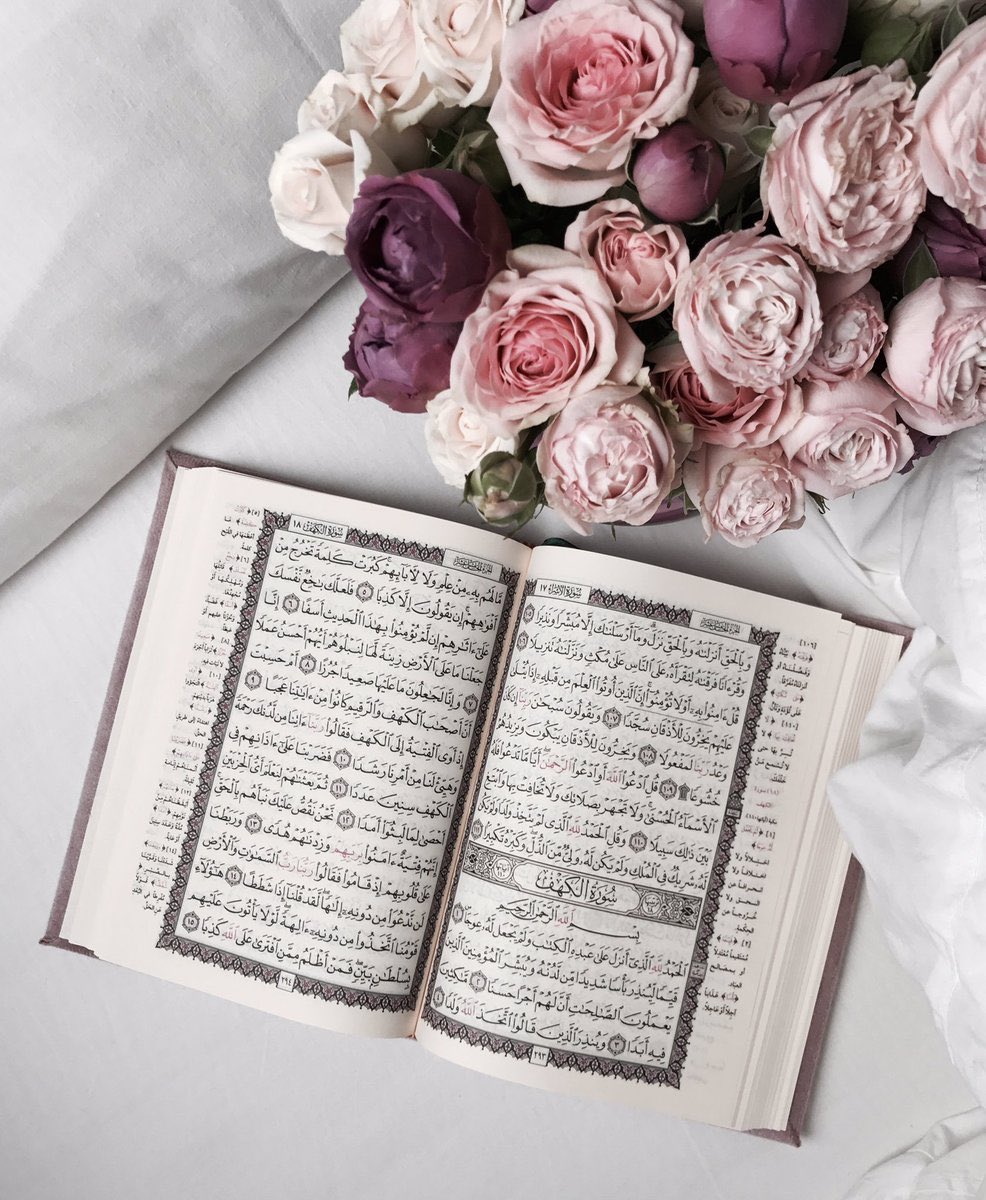 سُورَةُ الإِسْرَاءِ ١٧
الجُزْءُ الخَامِسَ عَشَرَ
وَبِٱلْحَقِّ أَنزَلْنَٰهُ وَبِٱلْحَقِّ نَزَلَ وَمَآ أَرْسَلْنَٰكَ إِلَّا مُبَشِّرًا وَنَذِيرًا ١٠٥
وَقُرْءَانًا فَرَقْنَٰهُ لِتَقْرَأَهُۥ عَلَى ٱلنَّاسِ عَلَىٰ مُكْثٍ وَنَزَّلْنَٰهُ تَنزِيلًا ١٠٦
قُلْ ءَامِنُوا۟ بِهِۦٓ أَوْ لَا تُؤْمِنُوٓا۟ إِنَّ ٱلَّذِينَ أُوتُوا۟ ٱلْعِلْمَ مِن قَبْلِهِۦٓ إِذَا يُتْلَىٰ
عَلَيْهِمْ يَخِرُّونَ لِلْأَذْقَانِ سُجَّدًا ١٠٧ وَيَقُولُونَ سُبْحَٰنَ رَبِّنَآ إِن كَانَ
وَعْدُ رَبِّنَا لَمَفْعُولًا ١٠٨ وَيَخِرُّونَ لِلْأَذْقَانِ يَبْكُونَ وَيَزِيدُهُمْ
خُشُوعًا ۩ ١٠٩ قُلِ ٱدْعُوا۟ ٱللَّهَ أَوِ ٱدْعُوا۟ ٱلرَّحْمَٰنَ أَيًّا مَّا تَدْعُوا۟ فَلَهُ
ٱلْأَسْمَآءُ ٱلْحُسْنَىٰ وَلَا تَجْهَرْ بِصَلَاتِكَ وَلَا تُخَافِتْ بِهَا وَٱبْتَغِ
بَيْنَ ذَٰلِكَ سَبِيلًا ١١٠ وَقُلِ ٱلْحَمْدُ لِلَّهِ ٱلَّذِى لَمْ يَتَّخِذْ وَلَدًا وَلَمْ يَكُن
لَّهُۥ شَرِيكٌ فِى ٱلْمُلْكِ وَلَمْ يَكُن لَّهُۥ وَلِىٌّ مِّنَ ٱلذُّلِّ وَكَبِّرْهُ تَكْبِيرًا ١١١
سُورَةُ الكَهْفِ
بِسْمِ ٱللَّهِ ٱلرَّحْمَٰنِ ٱلرَّحِيمِ
ٱلْحَمْدُ لِلَّهِ ٱلَّذِىٓ أَنزَلَ عَلَىٰ عَبْدِهِ ٱلْكِتَٰبَ وَلَمْ يَجْعَل لَّهُۥ عِوَجَا ١
قَيِّمًا لِّيُنذِرَ بَأْسًا شَدِيدًا مِّن لَّدُنْهُ وَيُبَشِّرَ ٱلْمُؤْمِنِينَ ٱلَّذِينَ
يَعْمَلُونَ ٱلصَّٰلِحَٰتِ أَنَّ لَهُمْ أَجْرًا حَسَنًا ٢ مَّٰكِثِينَ
فِيهِ أَبَدًا ٣ وَيُنذِرَ ٱلَّذِينَ قَالُوا۟ ٱتَّخَذَ ٱللَّهُ وَلَدًا ٤
٢٩٣
سُورَةُ الكَهْفِ ١٨
الجُزْءُ الخَامِسَ عَشَرَ
مَّا لَهُم بِهِۦ مِنْ عِلْمٍ وَلَا لِءَابَآئِهِمْ كَبُرَتْ كَلِمَةً تَخْرُجُ مِنْ
أَفْوَٰهِهِمْ إِن يَقُولُونَ إِلَّا كَذِبًا ٥ فَلَعَلَّكَ بَٰخِعٌ نَّفْسَكَ
عَلَىٰٓ ءَاثَٰرِهِمْ إِن لَّمْ يُؤْمِنُوا۟ بِهَٰذَا ٱلْحَدِيثِ أَسَفًا ٦ إِنَّا
جَعَلْنَا مَا عَلَى ٱلْأَرْضِ زِينَةً لَّهَا لِنَبْلُوَهُمْ أَيُّهُمْ أَحْسَنُ عَمَلًا
٧ وَإِنَّا لَجَٰعِلُونَ مَا عَلَيْهَا صَعِيدًا جُرُزًا ٨ أَمْ حَسِبْتَ
أَنَّ أَصْحَٰبَ ٱلْكَهْفِ وَٱلرَّقِيمِ كَانُوا۟ مِنْ ءَايَٰتِنَا عَجَبًا ٩
إِذْ أَوَى ٱلْفِتْيَةُ إِلَى ٱلْكَهْفِ فَقَالُوا۟ رَبَّنَآ ءَاتِنَا مِن لَّدُنكَ رَحْمَةً
وَهَيِّئْ لَنَا مِنْ أَمْرِنَا رَشَدًا ١٠ فَضَرَبْنَا عَلَىٰٓ ءَاذَانِهِمْ فِى
ٱلْكَهْفِ سِنِينَ عَدَدًا ١١ ثُمَّ بَعَثْنَٰهُمْ لِنَعْلَمَ أَىُّ ٱلْحِزْبَيْنِ
أَحْصَىٰ لِمَا لَبِثُوٓا۟ أَمَدًا ١٢ نَّحْنُ نَقُصُّ عَلَيْكَ نَبَأَهُم بِٱلْحَقِّ
إِنَّهُمْ فِتْيَةٌ ءَامَنُوا۟ بِرَبِّهِمْ وَزِدْنَٰهُمْ هُدًى ١٣ وَرَبَطْنَا
عَلَىٰ قُلُوبِهِمْ إِذْ قَامُوا۟ فَقَالُوا۟ رَبُّنَا رَبُّ ٱلسَّمَٰوَٰتِ وَٱلْأَرْضِ
لَن نَّدْعُوَا۟ مِن دُونِهِۦٓ إِلَٰهًا لَّقَدْ قُلْنَآ إِذًا شَطَطًا ١٤ هَٰٓؤُلَآءِ
قَوْمُنَا ٱتَّخَذُوا۟ مِن دُونِهِۦٓ ءَالِهَةً لَّوْلَا يَأْتُونَ عَلَيْهِم
بِسُلْطَٰنٍۭ بَيِّنٍ فَمَنْ أَظْلَمُ مِمَّنِ ٱفْتَرَىٰ عَلَى ٱللَّهِ كَذِبًا ١٥
٢٩٤